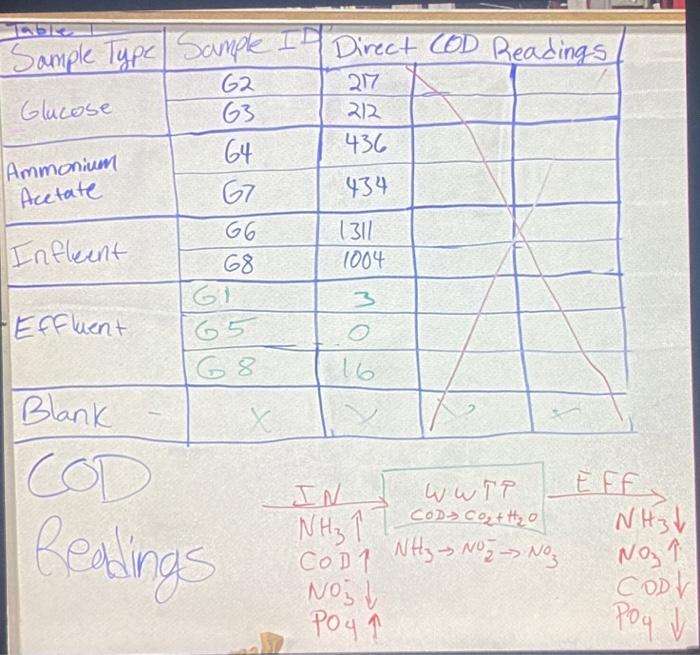 Table 1
Sample Type Sample ID Direct COD Readings
Glucose
G2 217
G3 212
Ammonium Acetate
G4 436
G7 434
Influent
G6 1311
G8 1004
Effluent
G1 3
G5 0
G8 16
Blank - X X X X
COD
Readings
IN
NH3 ↑
COD ↑
NO3- ↓
PO4 ↑
WWTP
COD → CO2 + H2O
NH3 → NO2- → NO3
EFF
NH3 ↓
NO3 ↑
COD ↓
PO4 ↓